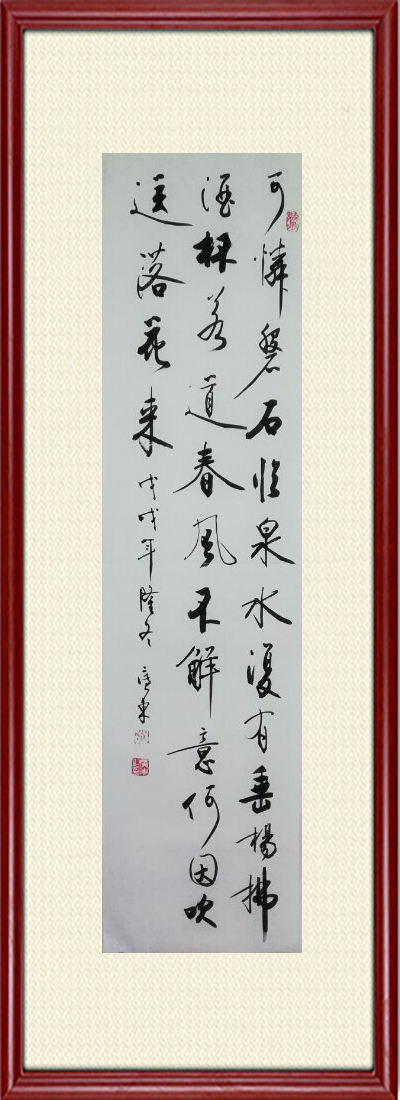 可憐磐石临泉水復有垂楊拂
酒杯若道春风不解意何因吹
送落花来 戊戌年隆冬